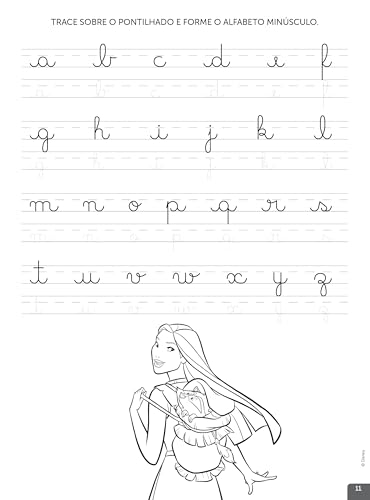 TRACE SOBRE O PONTILHADO E FORME O ALFABETO MINÚSCULO.
a b c d e f
a b c d e f
g h i j k l
g h i j k l
m n o p q r s
m n o p q r s
t u v w x y z
t u v w x y z
© Disney
11